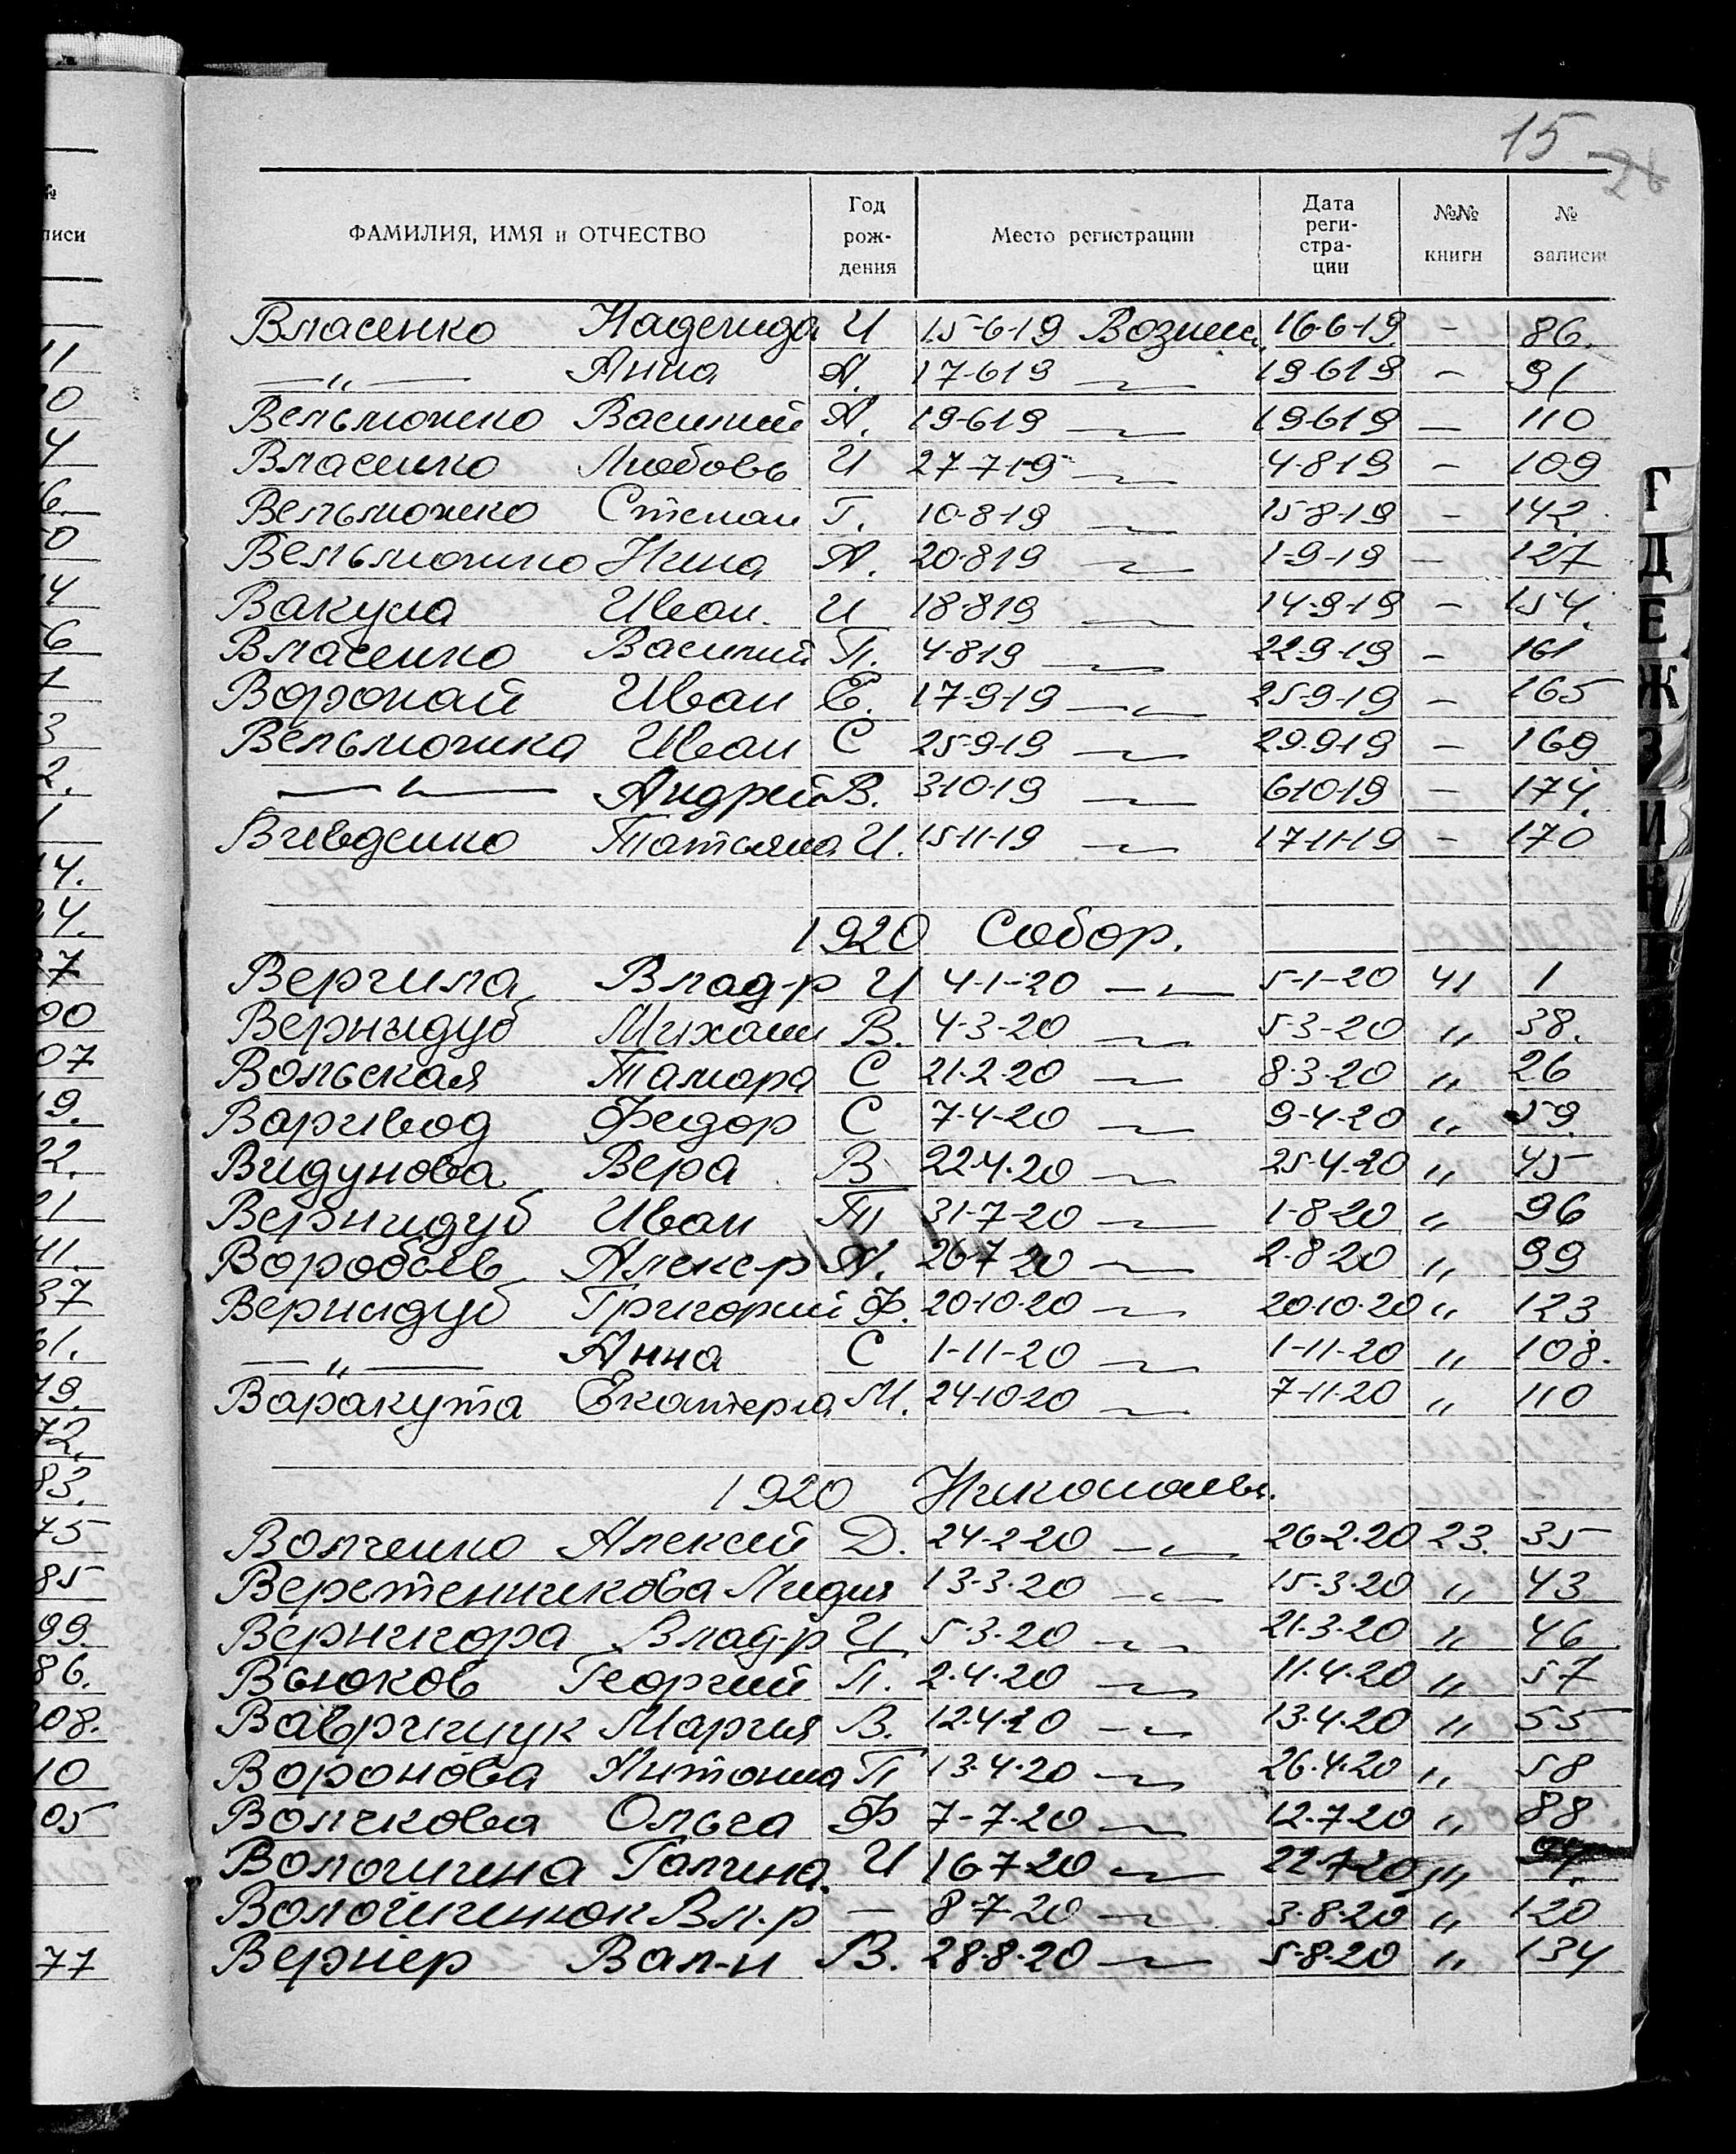 15 26
ФАМИЛИЯ, ИМЯ и ОТЧЕСТВО Год рож- дения Место регистрации Дата реги- стра- ции №№ книги № записи
Власенко Надежда И 15-6-19 Вознес. 16-6-19 - 86.
—"— Анна А. 17-6-19 —"— 19-6-19 - 91
Вельможко Василий А. 19-6-19 —"— 19-6-19 - 110
Власенко Любовь И 27-7-19 —"— 4-8-19 - 109
Вельможко Степан Г. 10-8-19 —"— 15-8-19 - 142
Вельможко Нина А. 20-8-19 —"— 1-9-19 - 127
Вакула Иван. И 18-8-19 —"— 14-9-19 - 154.
Власенко Василий П. 4-8-19 —"— 22-9-19 - 161
Воропай Иван Е. 17-9-19 —"— 25-9-19 - 165
Вельможка Иван С 25-9-19 —"— 29-9-19 - 169
—"— Андрей В. 3-10-19 —"— 6-10-19 - 174.
Вивденко Татьяна И. 15-11-19 —"— 17-11-19 - 170
1920 Собор.
Вергила Влад-р И 4-1-20 —"— 5-1-20 41 1
Вернидуб Михаил В. 4-3-20 —"— 5-3-20 " 38.
Вольская Тамара С 21-2-20 —"— 8-3-20 " 26
Варивод Федор С 7-4-20 —"— 9-4-20 " 59.
Видунова Вера В 22-4-20 —"— 25-4-20 " 45
Вернидуб Иван Т 31-7-20 —"— 1-8-20 " 96
Воробьёв Алекс-р А. 26-7-20 —"— 2-8-20 " 99
Вернидуб Григорий Ф. 20-10-20 —"— 20-10-20 " 123
—"— Анна С 1-11-20 —"— 1-11-20 " 108.
Варакута Екатерина М. 24-10-20 —"— 7-11-20 " 110
1920 Николаевс.
Волченко Алексей Д. 24-2-20 —"— 26-2-20 23. 35
Веретенникова Лидия 13-3-20 —"— 15-3-20 " 43
Вернигора Влад-р И 5-3-20 —"— 21-3-20 " 46
Вьюков Георгий П. 2-4-20 —"— 11-4-20 " 57
Мария В. 12-4-20 —"— 13-4-20 " 55
Воронова Антонина П 13-4-20 —"— 26-4-20 " 58
Волчкова Ольга Ф 7-7-20 —"— 12-7-20 " 88
Галина. И 16-7-20 —"— 22-7-20 " 94.
Вл-р — 8-7-20 —"— 3-8-20 " 120
Вернер Вал-н В. 28-8-20 —"— 5-8-20 " 134
Г
Д
Е
Ж
З
И